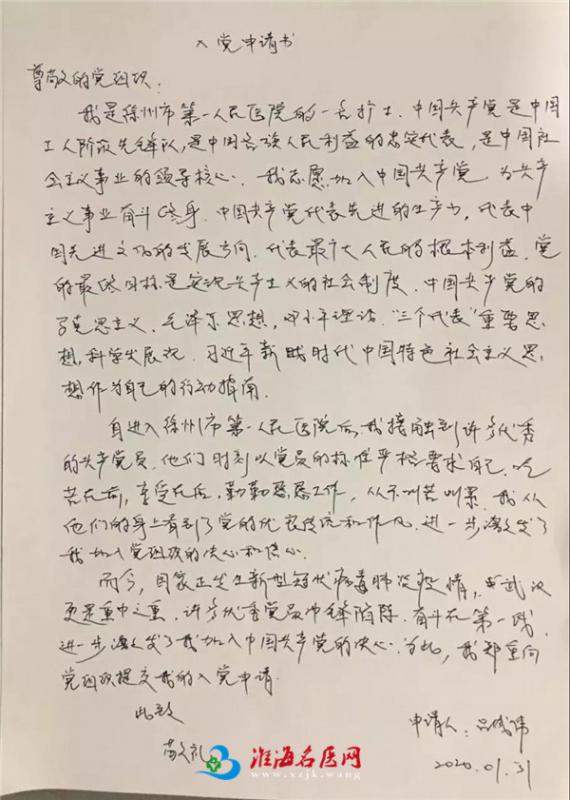 入党申请书
尊敬的党组织:
我是徐州市第一人民医院的一名护士. 中国共产党是中国
工人阶级先锋队,是中国各族人民利益的忠实代表,是中国社
会主义事业的领导核心. 我志愿加入中国共产党,为共产
主义事业奋斗终身. 中国共产党代表先进的生产力,代表中
国先进文化的发展方向. 代表最广大人民的根本利益. 党
的最终目标是实现共产主义的社会制度. 中国共产党的
马克思主义、毛泽东思想,邓小平理论."三个代表"重要思
想,科学发展观. 习近平新时代中国特色社会主义思
想作为自己的行动指南.
自进入徐州市第一人民医院后,我接触到许多优秀
的共产党员. 他们时刻以党员的标准严格要求自己. 吃
苦在前,享受在后,勤勤恳恳工作,从不叫苦叫累. 我从
他们的身上看到了党的优良传统和作风. 进一步激发了
我加入党组织的决心和信心.
而今,国家正发生新型冠状病毒肺炎疫情,武汉
更是重中之重. 许多优秀党员冲锋陷阵. 奋斗在第一线.
进一步激发了我加入中国共产党的决心. 为此,我郑重向
党组织提交我的入党申请.
此致
敬礼
申请人:
2020.01.31
淮海名医网
www.xzjk.wang